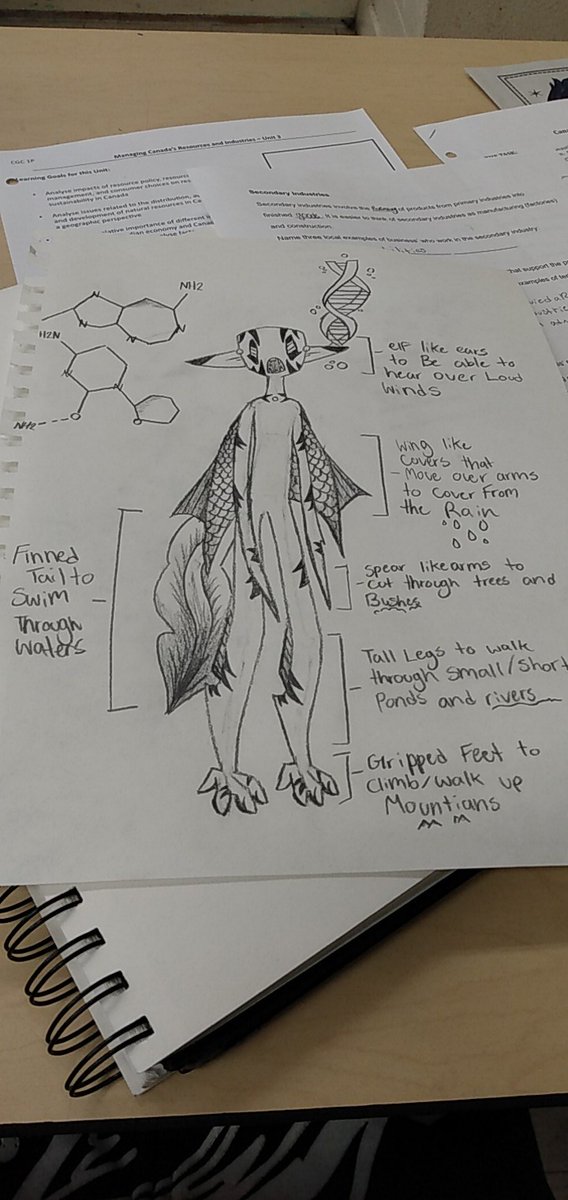 CGC 1P
Managing Canada's Resources and Industries – Unit 3
Learning Goals for this Unit:
Analyse impacts of resource policy, resource
management, and consumer choices on res
sustainability in Canada
Analyse issues related to the distribution,
and development of natural resources in Ca
a geographic perspective
relative importance of different
Secondary Industries
Secondary industries involves the of products from primary industries into
finished . It is easier to think of secondary industries as manufacturing (factories)
and construction.
Name three local examples of business' who work in the secondary industry
TASK:
that support the
examples of
NH2
H2N
NH2
elf like ears
to Be able to
hear over Loud
winds
Wing like
Covers that
Move over arms
to cover From
the Rain
Spear like arms to
Cut through trees and
Bushes
Tall Legs to walk
through small/short
Ponds and rivers
Gripped Feet to
Climb/walk up
Mountians
Finned
Tail to
Swim
Through
Waters